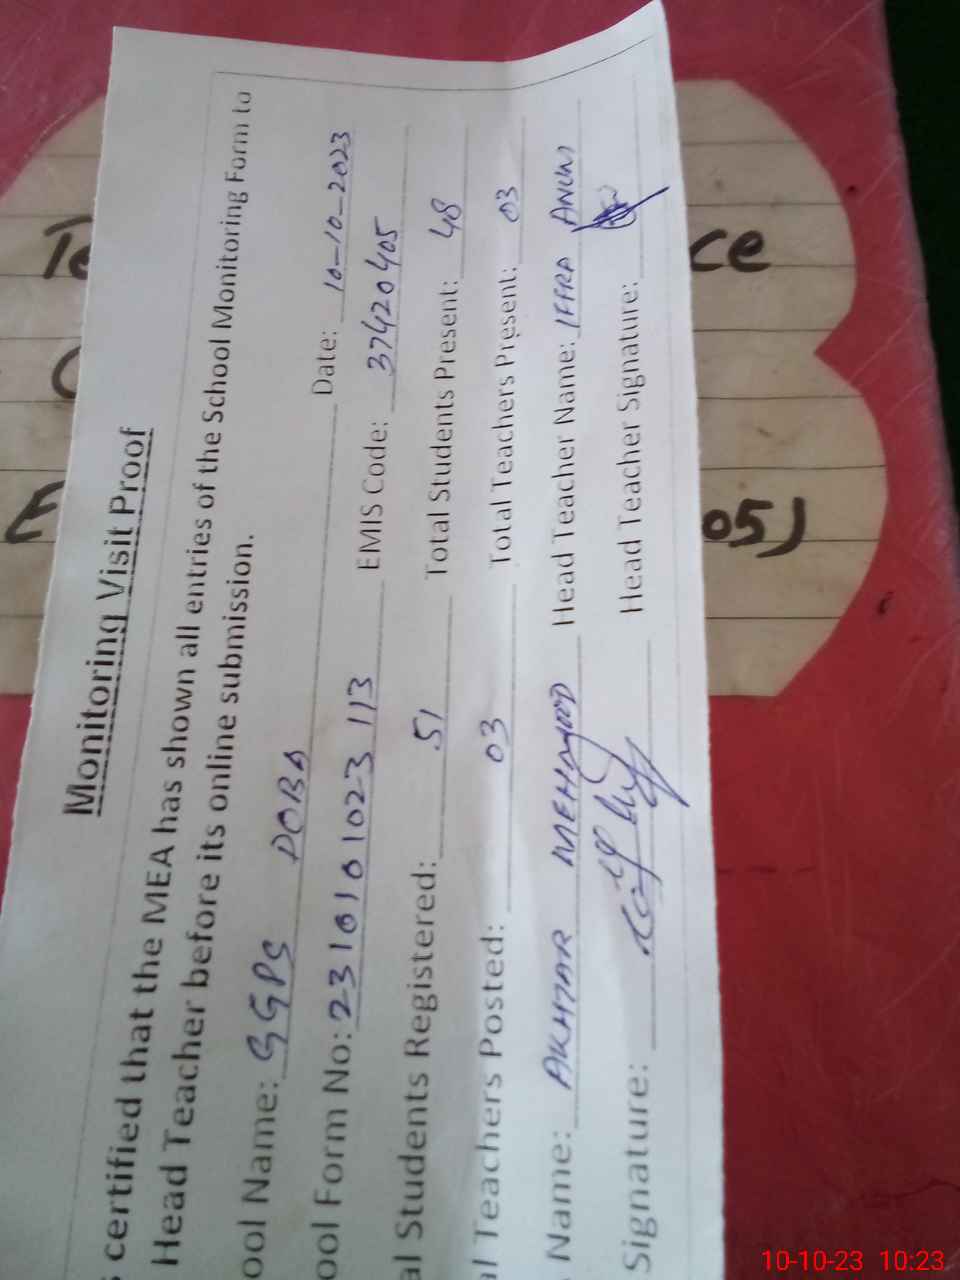 Monitoring Visit Proof
certified that the MEA has shown all entries of the School Monitoring Form to
Head Teacher before its online submission.
ool Name: GGPS DOBA Date: 10-10-2023
ool Form No: 2310101023113 EMIS Code: 37420405
al Students Registered: 51 Total Students Present: 48
al Teachers Posted: 03 Total Teachers Present: 03
Name: AKHTAR MEHMOOD Head Teacher Name: IFFRA
Signature: Head Teacher Signature:
Te ce
C
E 05)
10-10-23 10:23